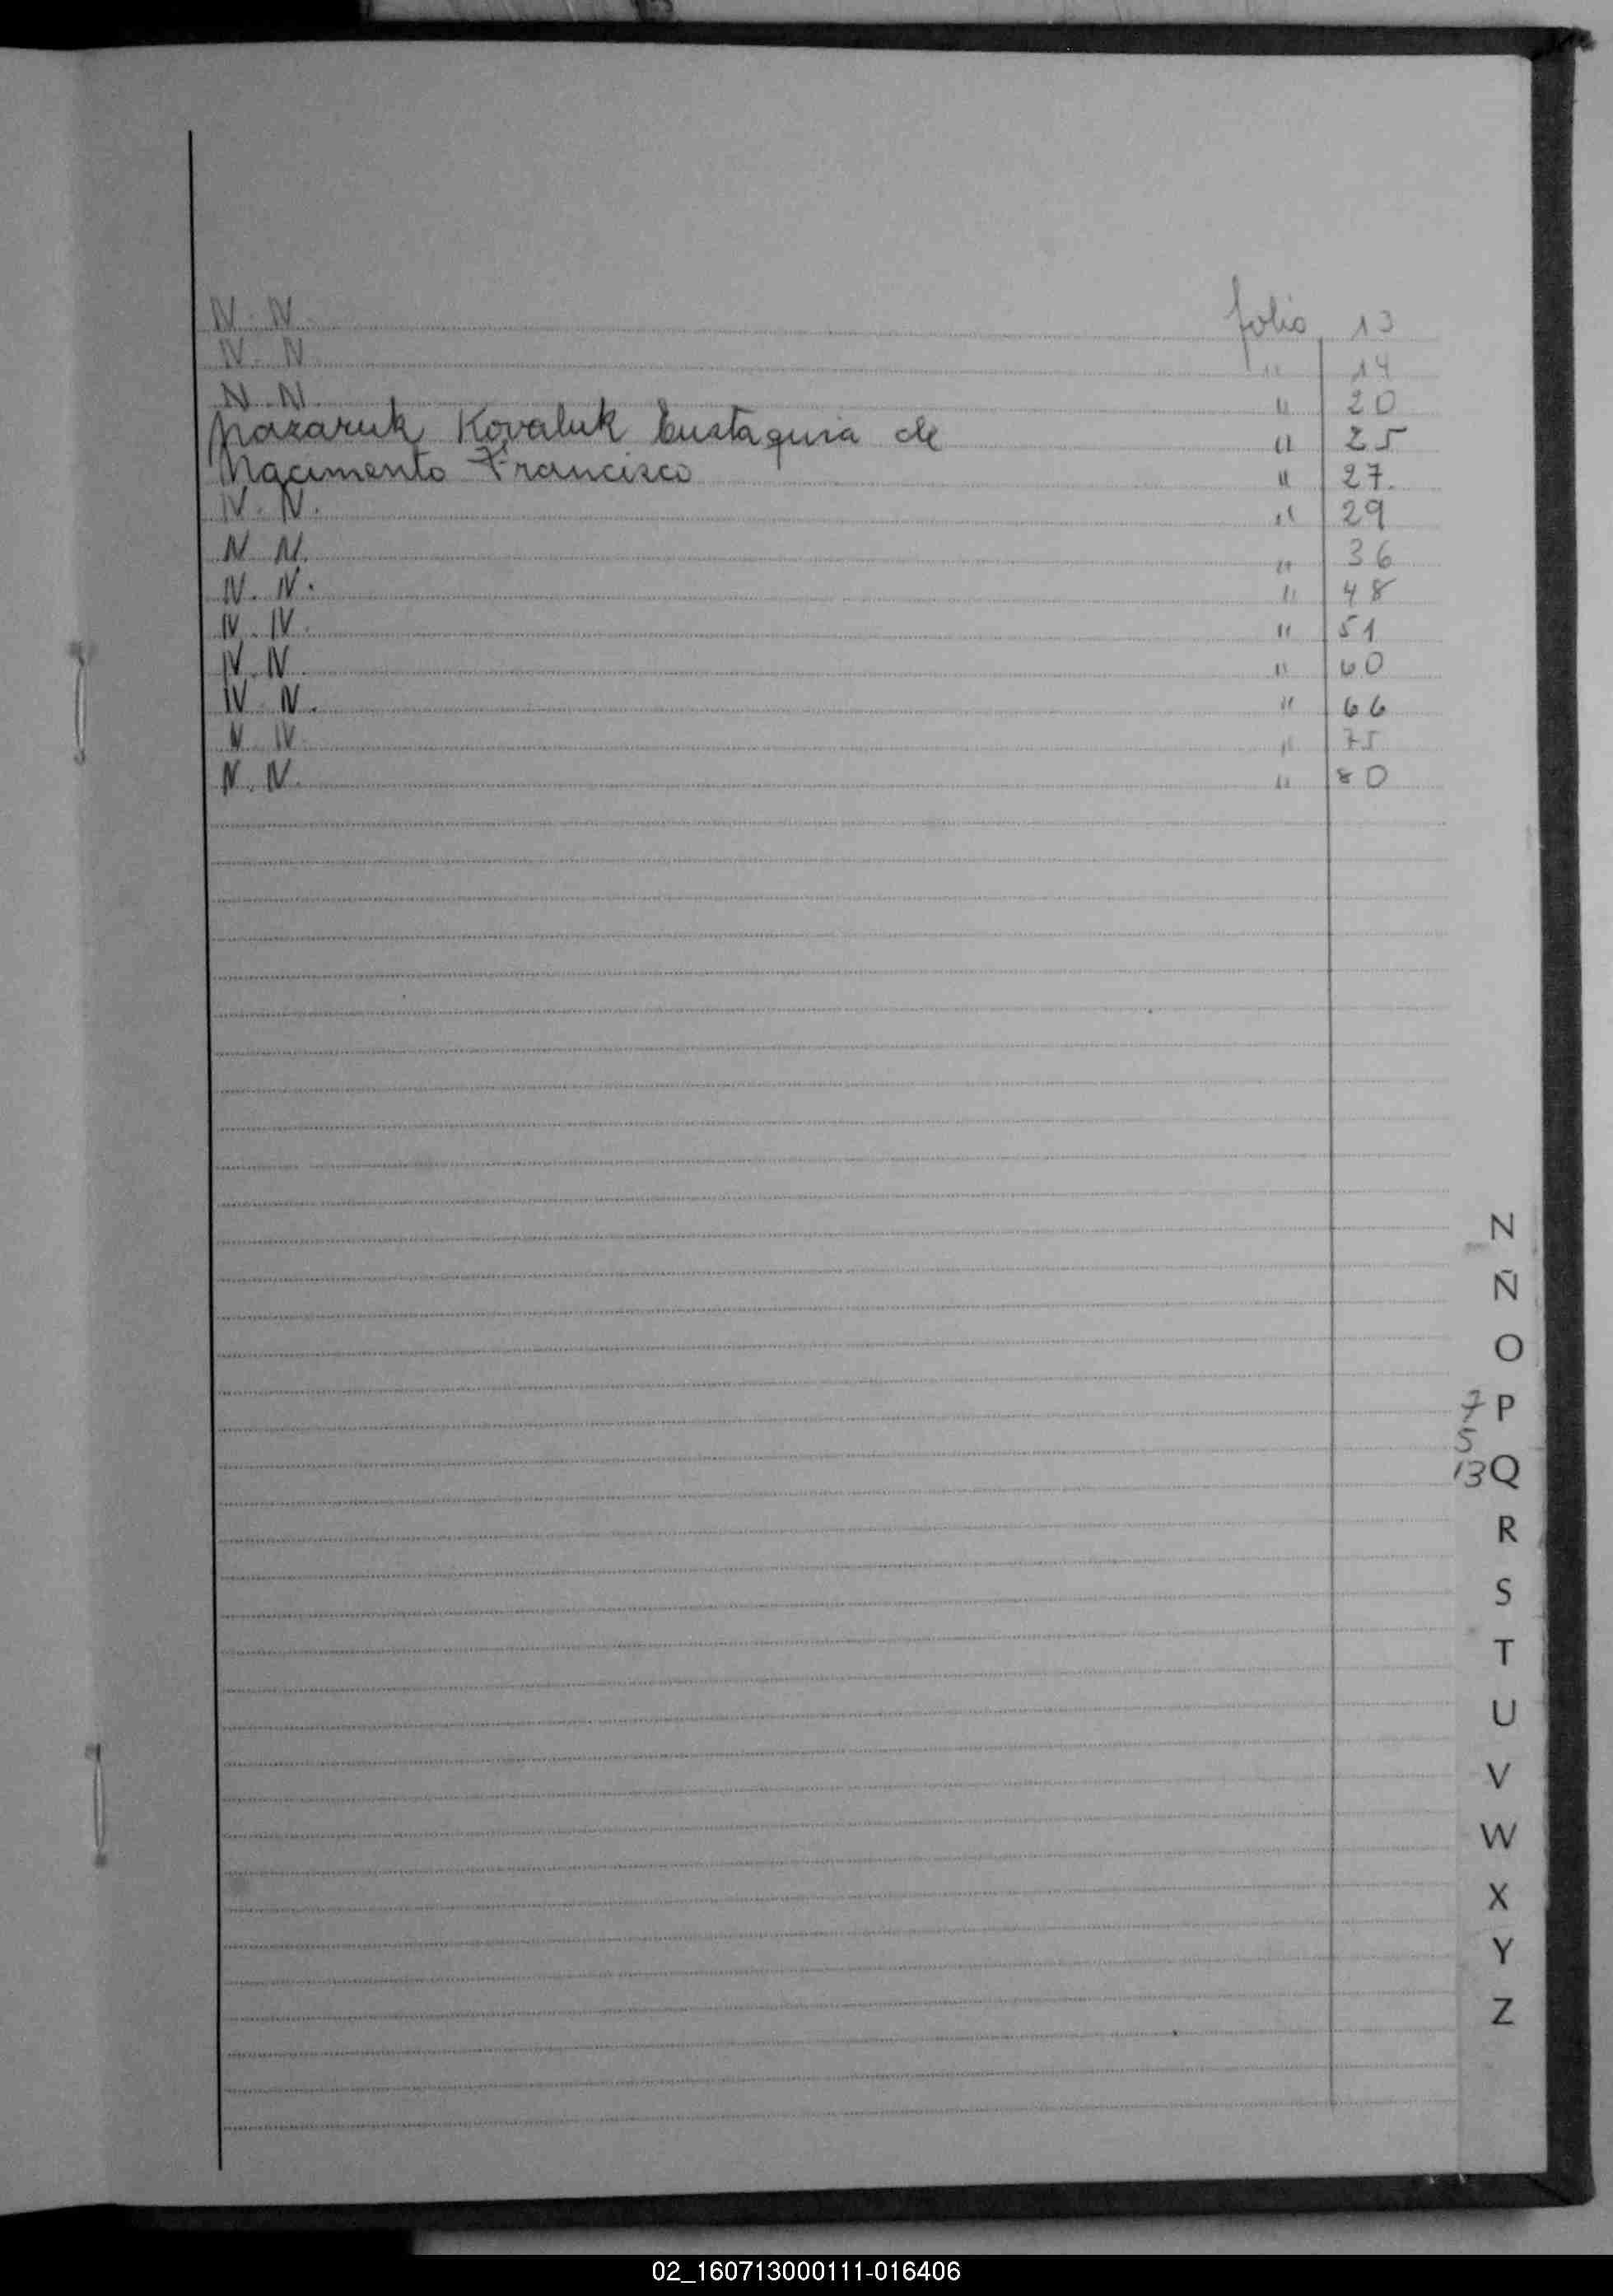 N. N. folio 13
N. N. " 14
N. N. " 20
Nazaruk Kovaluk Eustaquia de " 25
Nacimento Francisco " 27.
N. N. " 29
N N. " 36
N. N. " 48
N. N. " 51
N. N. " 60
N N. " 66
N N. " 75
N. N. " 80
N
Ñ
O
7 P
5
13 Q
R
S
T
U
V
W
X
Y
Z
02_160713000111-016406